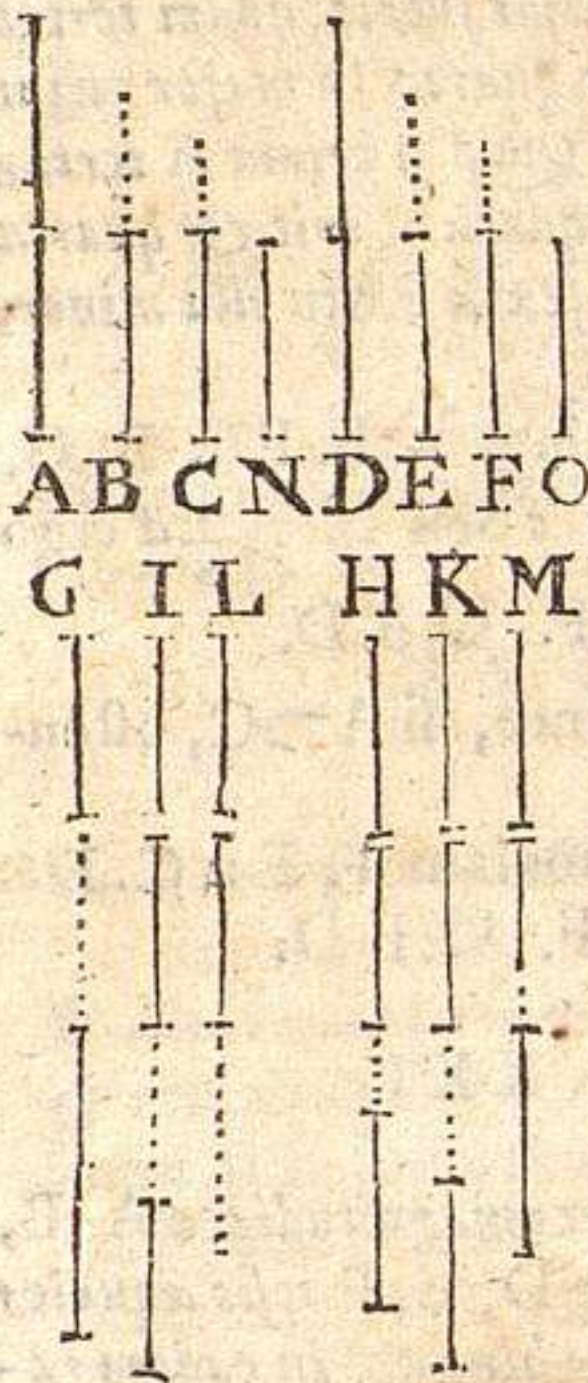 A B C N D E F O
G I L H K M